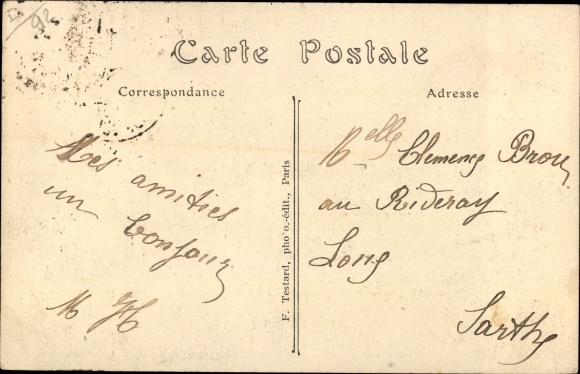 92
Carte Postale
Correspondance
Adresse
Mes amitiés
un bonjour
M H
F. Testard, photo.-édit., Paris
Melle Clemence Brou
au Rideray
Long
Sarthe